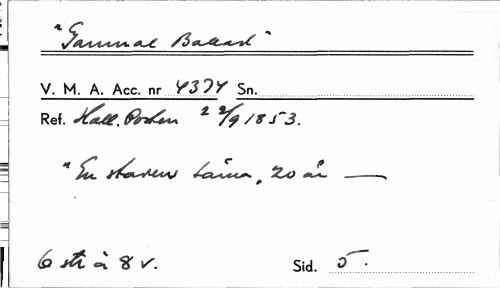 "Gammal Ballad"
V. M. A. Acc. nr 4374 Sn.
Ref. Hall. Posten 22/9 1853.
"En stavens tärna, 20 år —
6 str à 8 v. Sid. 5.